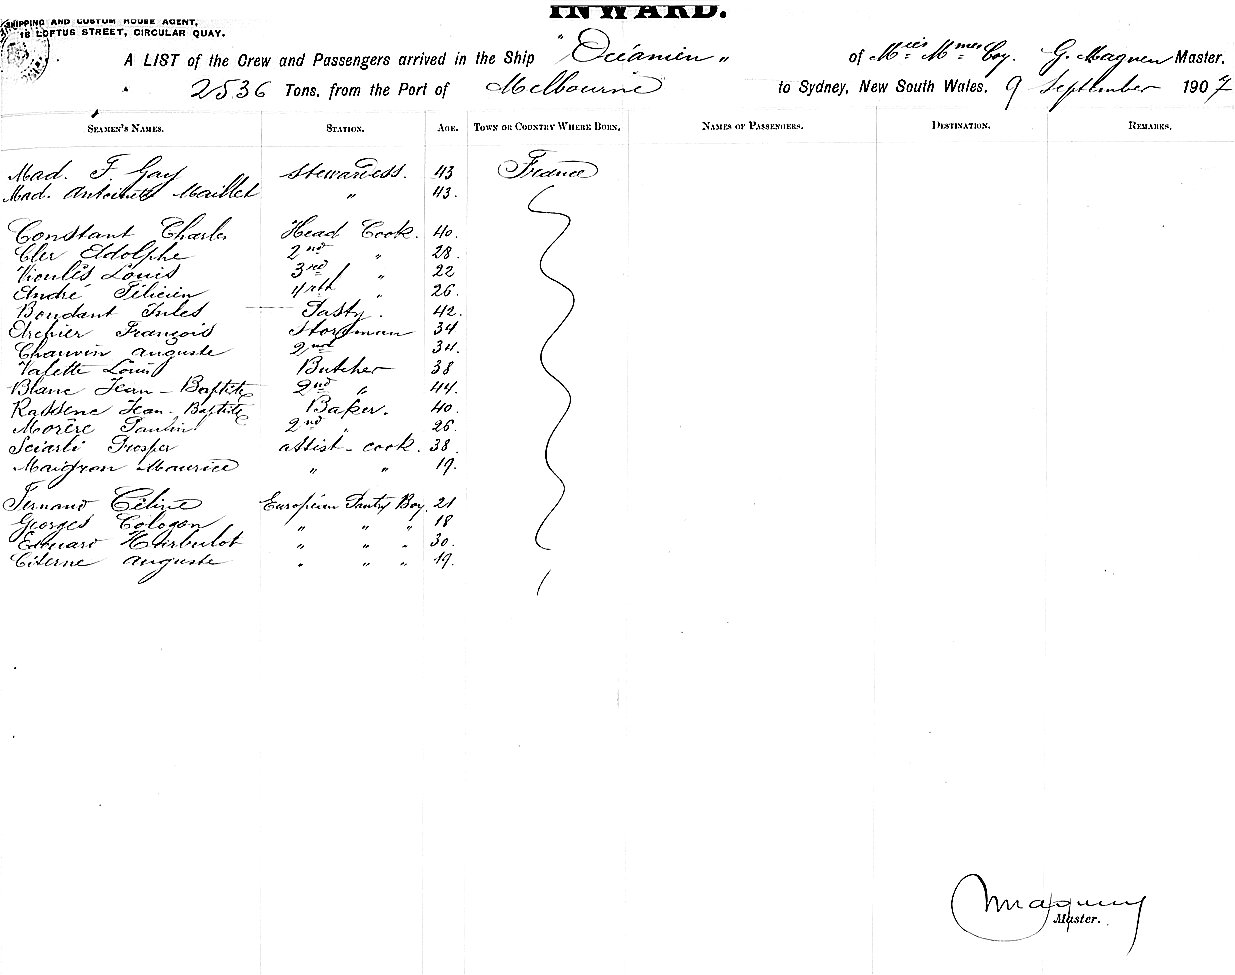 INWARD.
SHIPPING AND CUSTOM HOUSE AGENT,
18 LOFTUS STREET, CIRCULAR QUAY.
A LIST of the Crew and Passengers arrived in the Ship "Océanien" of M. M. Coy. G. Magnen Master.
2536 Tons, from the Port of Melbourne to Sydney, New South Wales, 9 September 1907
SEAMEN'S NAMES. STATION. AGE. TOWN OR COUNTRY WHERE BORN. NAMES OF PASSENGERS. DESTINATION. REMARKS.
Mad. F. Gay Stewardess. 43 France
Mad. Antoinette Maillet " 43.
Constant Charles Head Cook. 40.
Cler Adolphe 2nd " 28.
Vioulès Louis 3rd " 22
André Félicien 4rth " 26.
Boudant Jules Pasty. 42.
François Storeman 34
Chauvin Auguste 2nd 34.
Valette Louis Butcher 38
Blanc Jean-Baptiste 2nd " 44.
Rassenc Jean-Baptiste Baker. 40.
Morère Paulin 2nd " 26.
Sciarli Prosper assist-cook. 38.
Maigron Maurice " " 19.
Fernand Céline Européien Pantry Boy. 21
Georges Cologon " " " 18
Edouard Herbulot " " " 30.
Citerne Auguste " " " 19.
Magnen
Master.